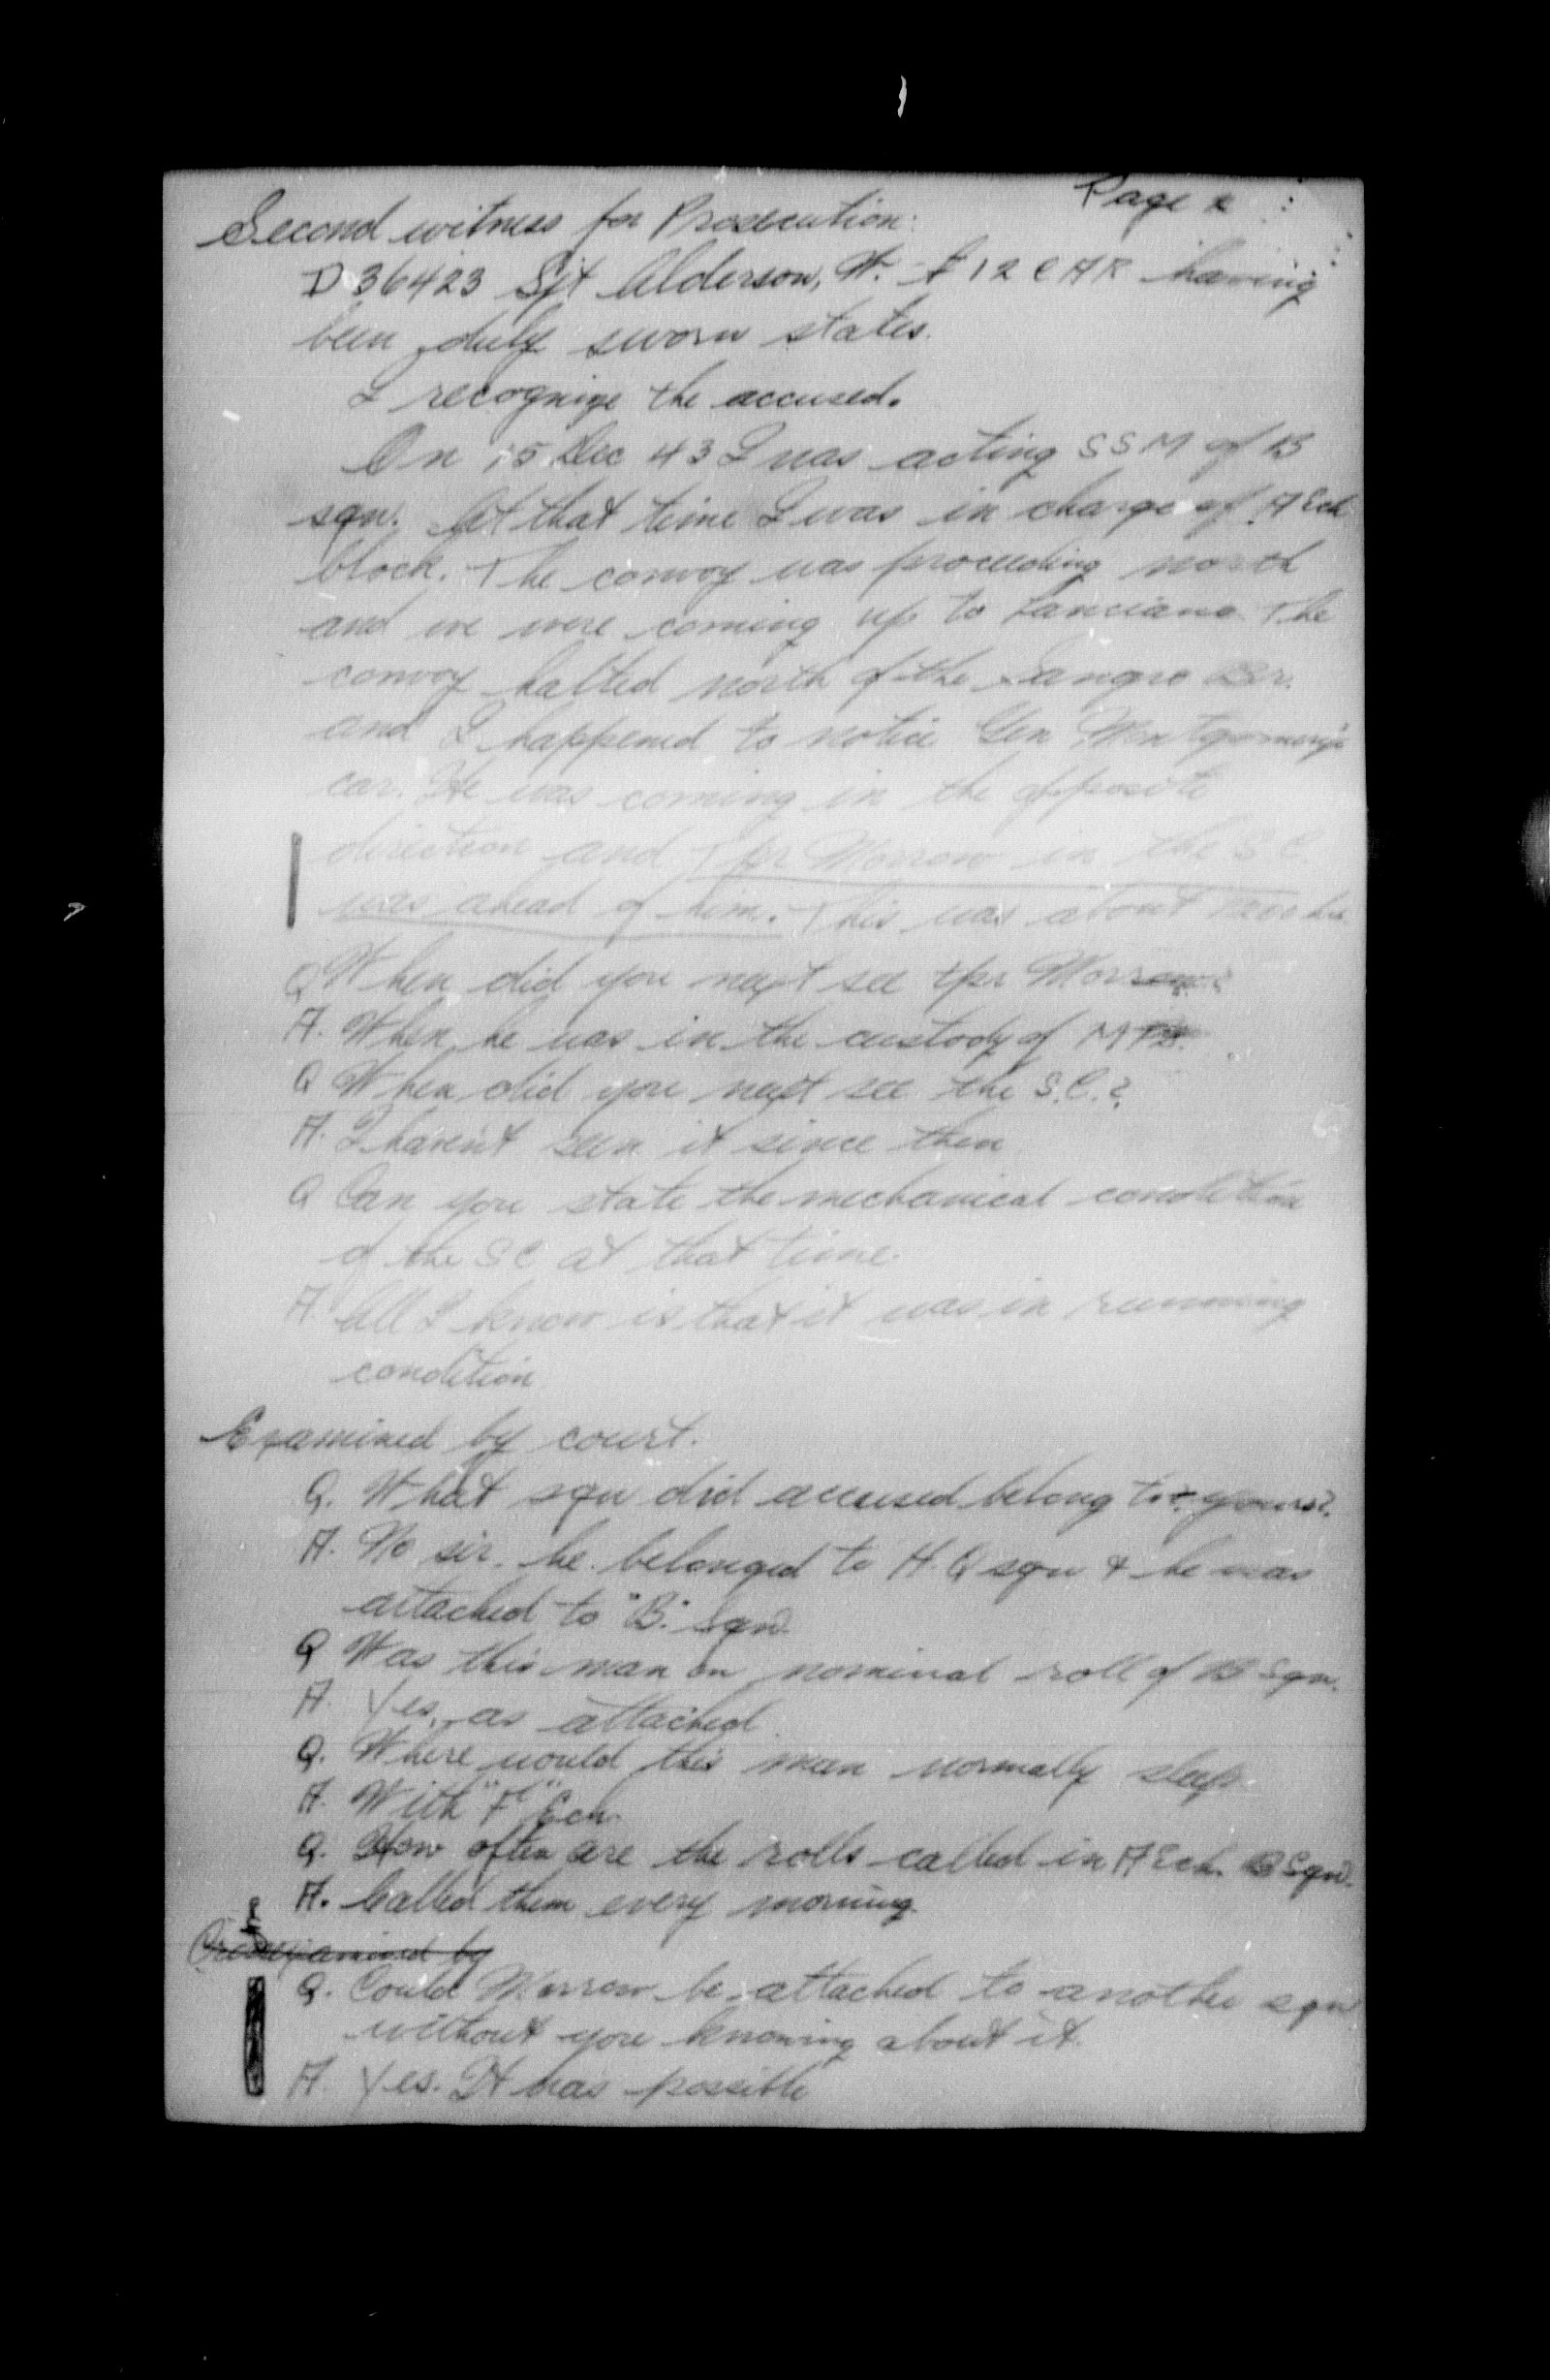 Page
Second witness for Prosecution:
D 36423 Sjt Alderson, W. 12 CAR having
been duly sworn states.
I recognize the accused.
On 15 Dec 43 I was acting SSM of B
sqn. At that time I was in charge of A Ech
block. The convoy was proceeding north
and we were coming up to Lanciano. The
convoy halted north of the Sangro Br.
and I happened to notice Gen Montgomery's
car. He was coming in the opposite
direction and Tpr Morrow in the S.C.
was ahead of him. This was about
Q When did you next see tpr Morrow.
A. When he was in the custody of
Q When did you next see the S.C.?
A. I haven't seen it since then
Q Can you state the mechanical condition
of the SC at that time.
A. All I know is that it was in running
condition
Examined by court.
Q. What sqn did accused belong to yours?
A. No sir. he belonged to H.Q sqn & he was
attached to "B" Sqn.
Q Was this man on nominal roll of B Sqn.
A. Yes, as attached.
Q. Where would this man normally sleep.
A. With "F" Ech.
Q. How often are the rolls called in A Ech. B Sqn.
A. Called them every morning.
Crossexamined by
Q. Could Morrow be attached to another sqn
without you knowing about it.
A. Yes. It was possible